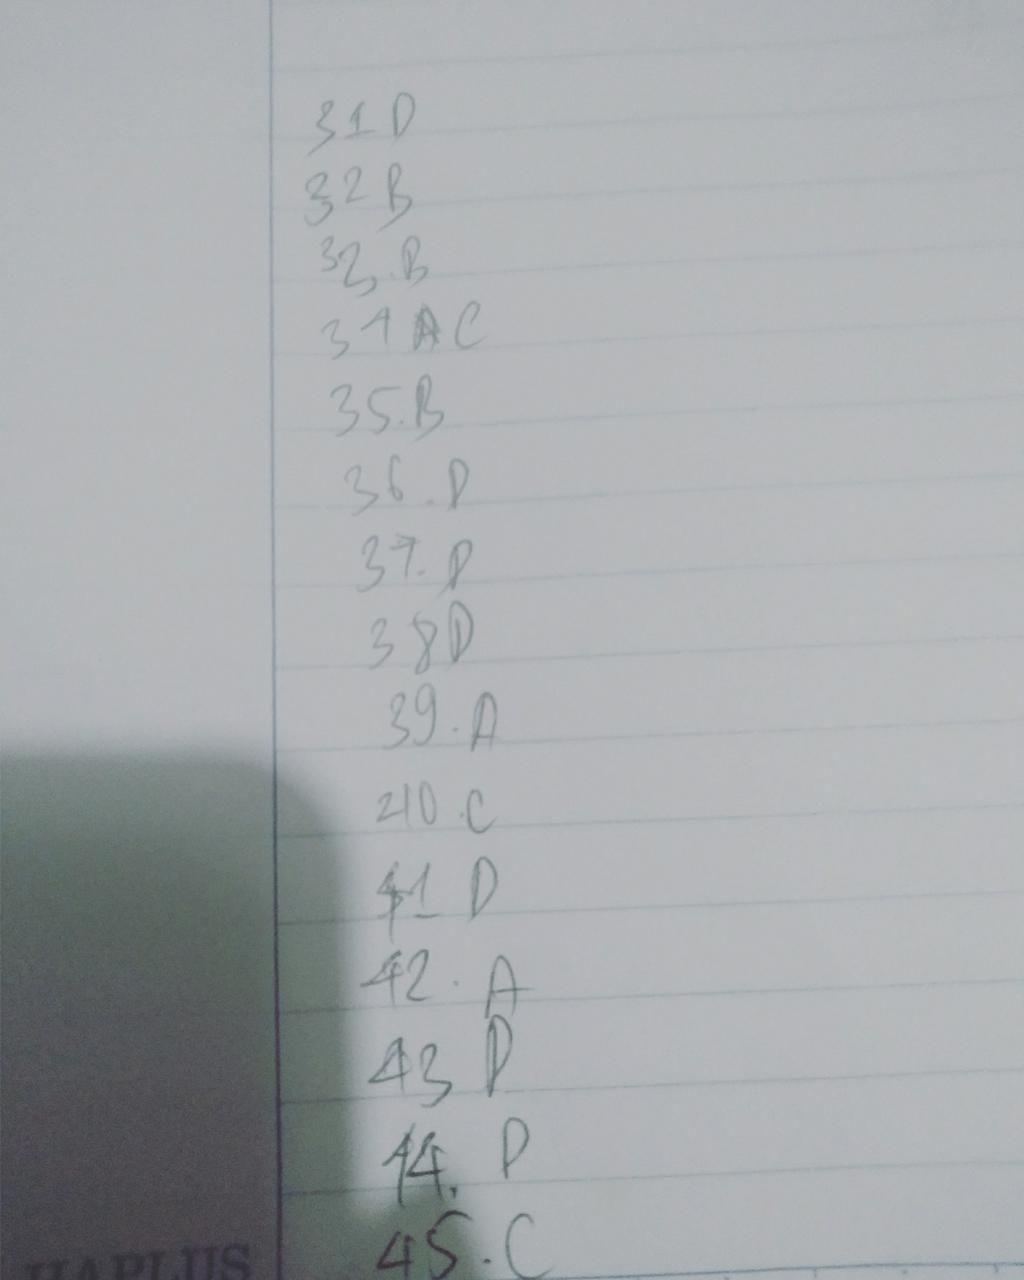 31 D
32 B
33. B
34 C
35. B
36. D
37. D
38 D
39. A
40. C
41 D
42. A
43 D
44. D
45. C